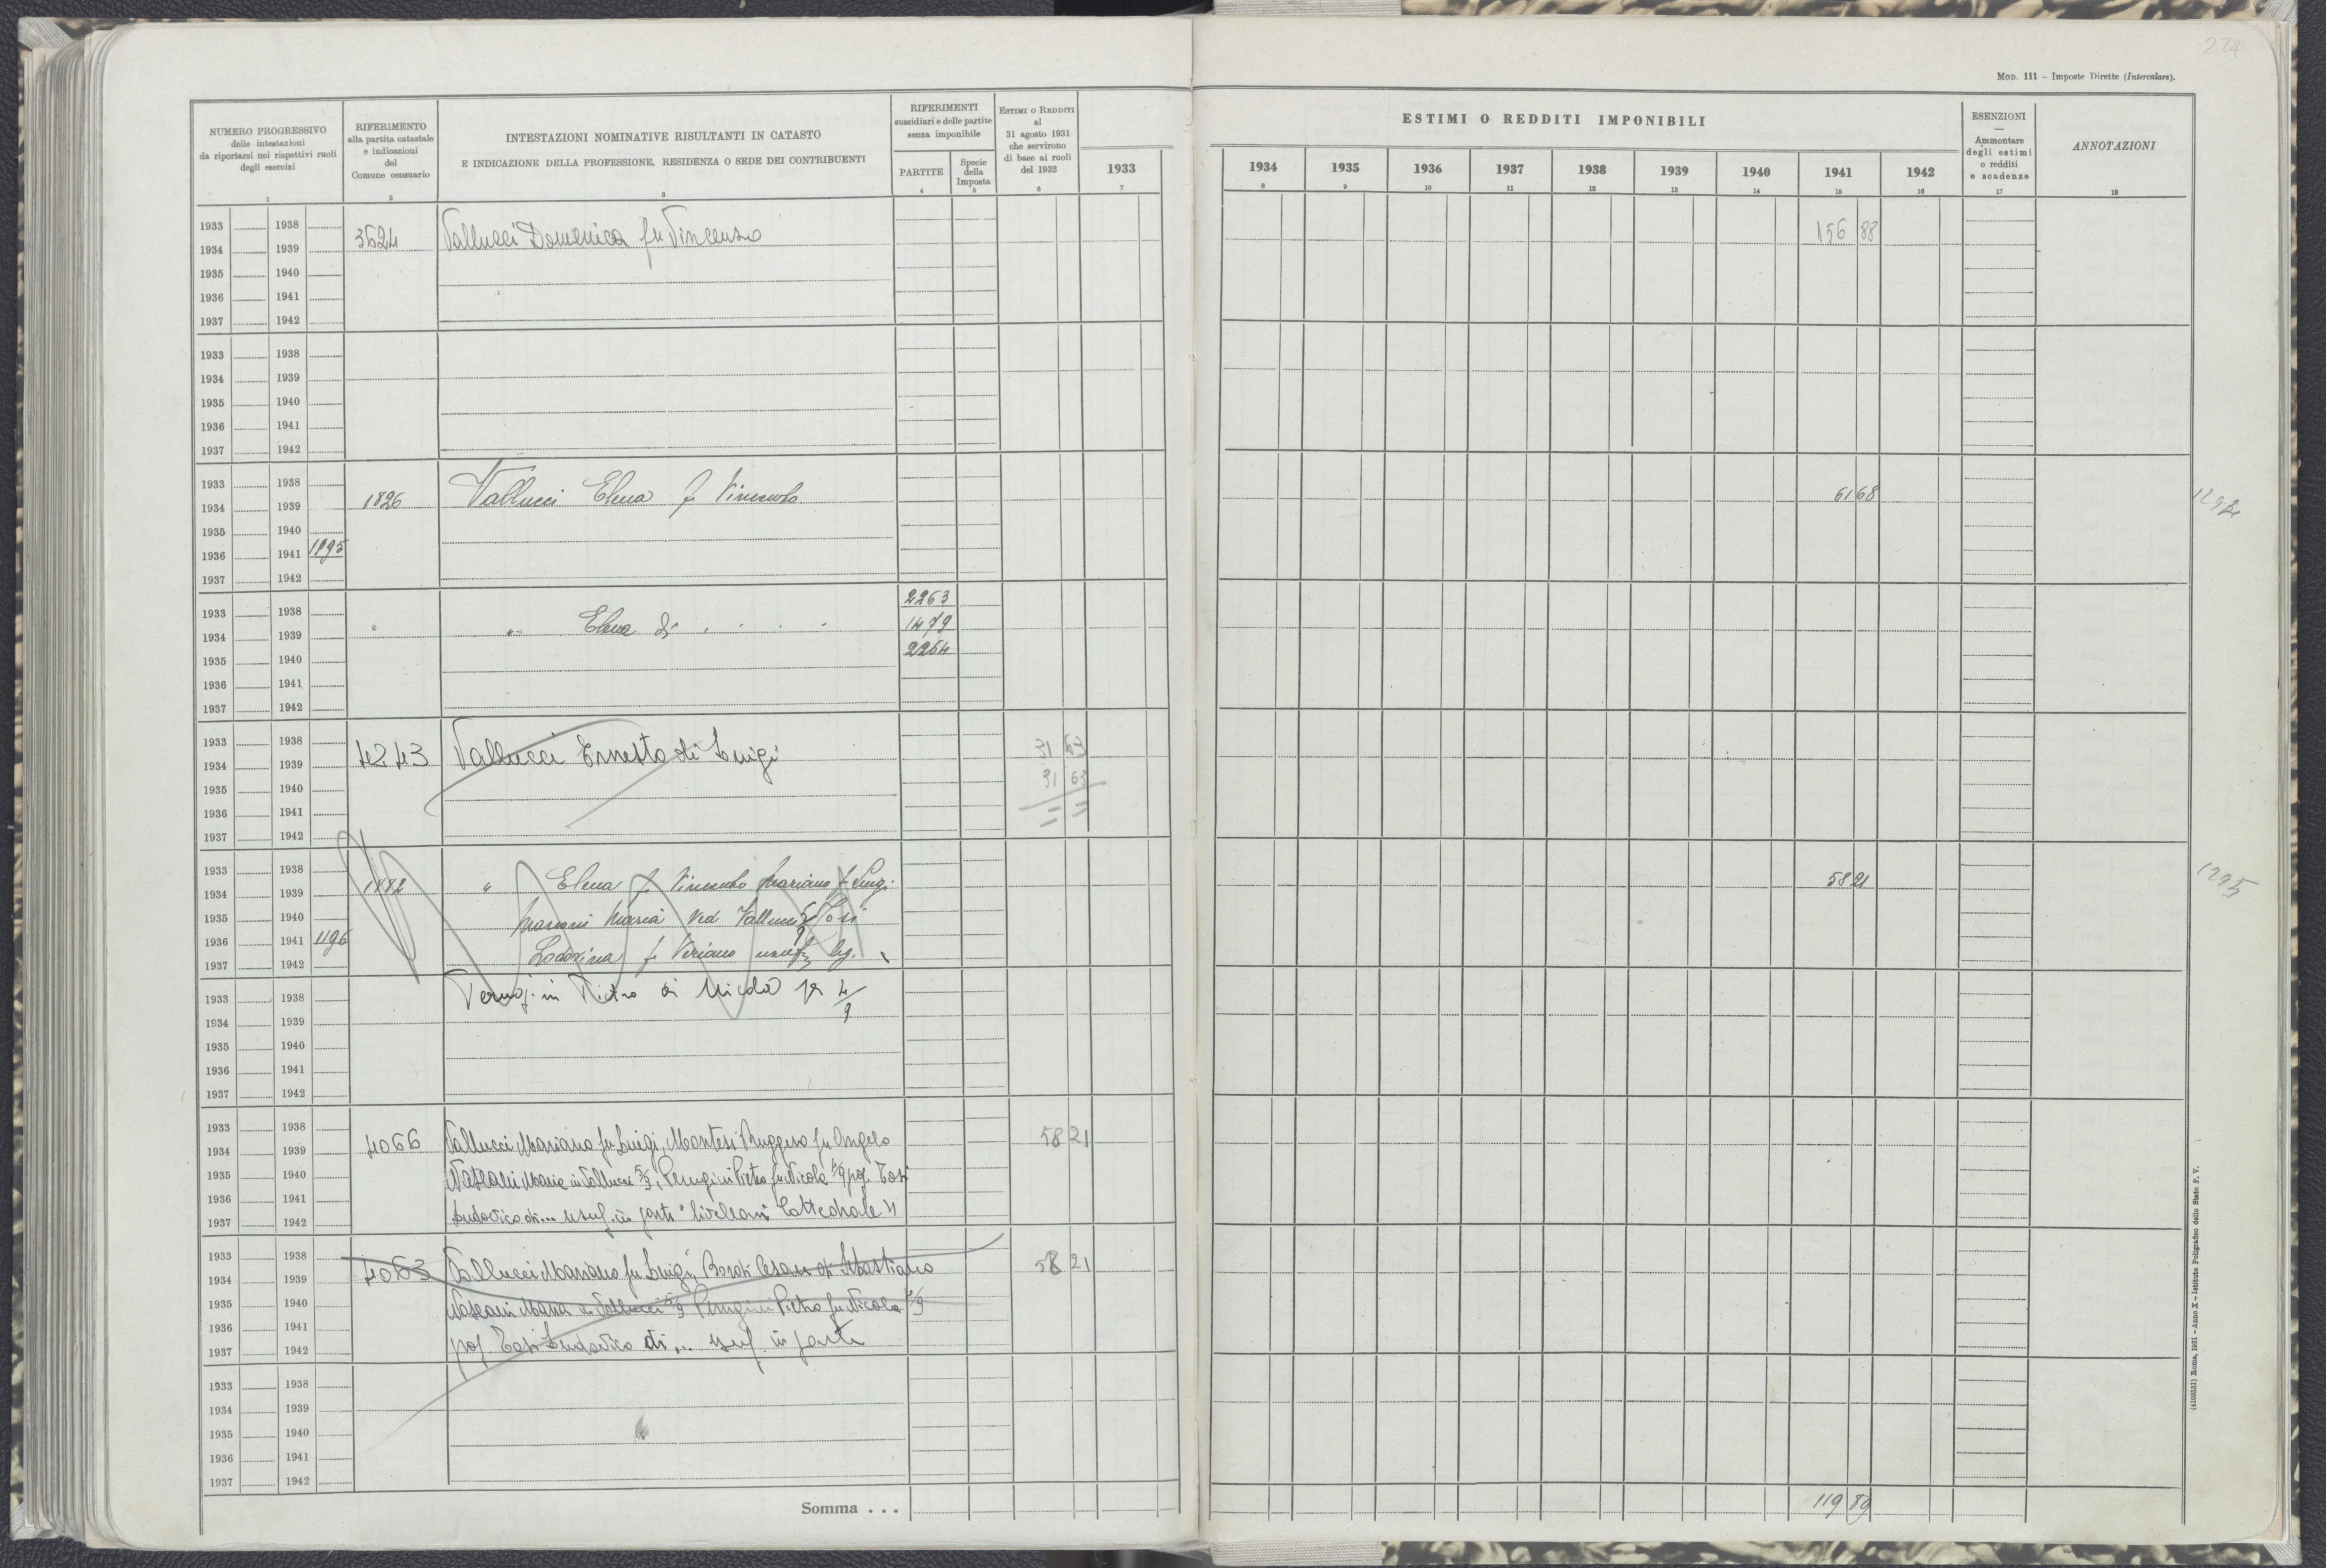 224
MOD. 111 – Imposte Dirette (Intercalare).
NUMERO PROGRESSIVO
delle intestazioni
da riportarsi nei rispettivi ruoli
degli esercizi
1
RIFERIMENTO
alla partita catastale
e indicazioni
del
Comune censuario
2
INTESTAZIONI NOMINATIVE RISULTANTI IN CATASTO
E INDICAZIONE DELLA PROFESSIONE, RESIDENZA O SEDE DEI CONTRIBUENTI
3
RIFERIMENTI
sussidiari e delle partite
senza imponibile
PARTITE
4
Specie
della
Imposta
5
ESTIMI O REDDITI
al
31 agosto 1931
che servirono
di base ai ruoli
del 1932
6
1933
7
ESTIMI O REDDITI IMPONIBILI
1934 1935 1936 1937 1938 1939 1940 1941 1942
8 9 10 11 12 13 14 15 16
ESENZIONI
—
Ammontare
degli estimi
o redditi
e scadenze
17
ANNOTAZIONI
18
1933 1938
1934 1939 3524 Vallucci Domenica fu Vincenzo 156 88
1935 1940
1936 1941
1937 1942
1933 1938
1934 1939
1935 1940
1936 1941
1937 1942
1933 1938
1934 1939 1826 Vallucci Elena f. Vincenzo 61 68 1294
1935 1940
1936 1941 1295
1937 1942
1933 1938 2263
1934 1939 " " Elena di . . . . 1479
1935 1940 2264
1936 1941
1937 1942
1933 1938
1934 1939 4243 Vallucci Ernesto di Luigi 31 63
1935 1940 31 63
1936 1941 = =
1937 1942
1933 1938
1934 1939 1482 " Elena f. Vincenzo Mariano f. Luigi 58 21 1295
1935 1940 Maria Ved Vallucci 5/9 Tosi
1936 1941 1196
1937 1942 f. usuf
1933 1938 Pietro di Nicola per 4/9
1934 1939
1935 1940
1936 1941
1937 1942
1933 1938
1934 1939 4066 Vallucci Mariano fu Luigi, Montesi Ruggero fu Angelo 58 21
1935 1940 Maria in Vallucci 5/9, Perugini Pietro fu Nicola 4/9 pr Tosi
1936 1941
1937 1942 Ludovico di... usuf. in parte "livellari Cattedrale"
1933 1938
1934 1939 4063 Vallucci Mariano fu Luigi, Cesare di 58 21
1935 1940 Maria in Vallucci 5/9 Perugini Pietro fu Nicola 4/9
1936 1941
1937 1942 Tosi Ludovico di... usuf. in parte
1933 1938
1934 1939
1935 1940
1936 1941
1937 1942
Somma . . . 119 89
(4109551) Roma, 1931 – Anno X – Istituto Poligrafico dello Stato P. V.